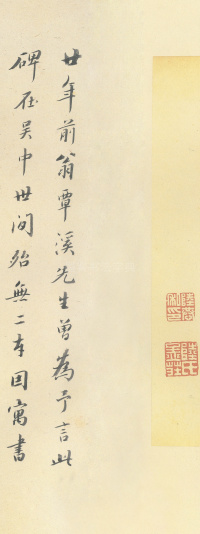 廿年前翁覃溪先生曾為予言此
碑在吳中世间殆無二本因寓書